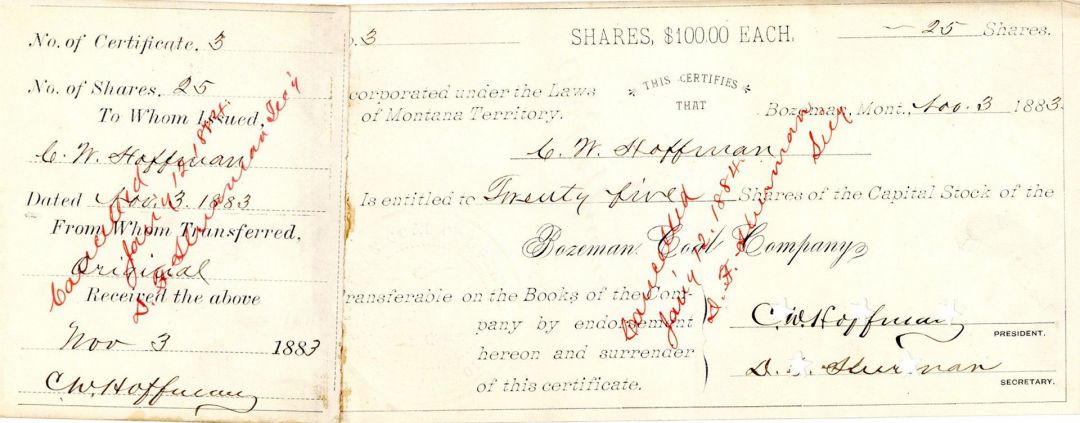 No. of Certificate. 3
No. of Shares, 25
To Whom Issued,
C. W. Hoffman
Dated Nov. 3. 1883
From Whom Transferred,
Original
Received the above
Nov 3 1883
C.W. Hoffman
Cancelled
Jan'y 12. 1884.
Sherman Sec'y
o. 3
SHARES, $100.00 EACH.
25 Shares.
corporated under the Laws
of Montana Territory.
THIS CERTIFIES
THAT
Bozeman, Mont., Nov. 3 1883.
C. W. Hoffman
Is entitled to Twenty five Shares of the Capital Stock of the
Bozeman Coal Company,
Transferable on the Books of the Com-
pany by endorsement
hereon and surrender
of this certificate.
C.W. Hoffman
PRESIDENT.
D. F. Sherman
SECRETARY.
Cancelled
Jan'y 12. 1884.
D. F. Sherman
Secy